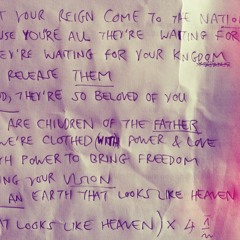 YOUR REIGN COME TO THE NATIO
USE YOU'RE ALL THEY'RE WAITING FOR
EY'RE WAITING FOR YOUR KINGDOM
RELEASE THEM
OD, THEY'RE SO BELOVED OF YOU
ARE CHILDREN OF THE FATHER
WE'RE CLOTHED WITH POWER & LOVE
TH POWER TO BRING FREEDOM
ING YOUR VISION
AN EARTH THAT LOOKS LIKE HEAVEN
AT LOOKS LIKE HEAVEN) X 4